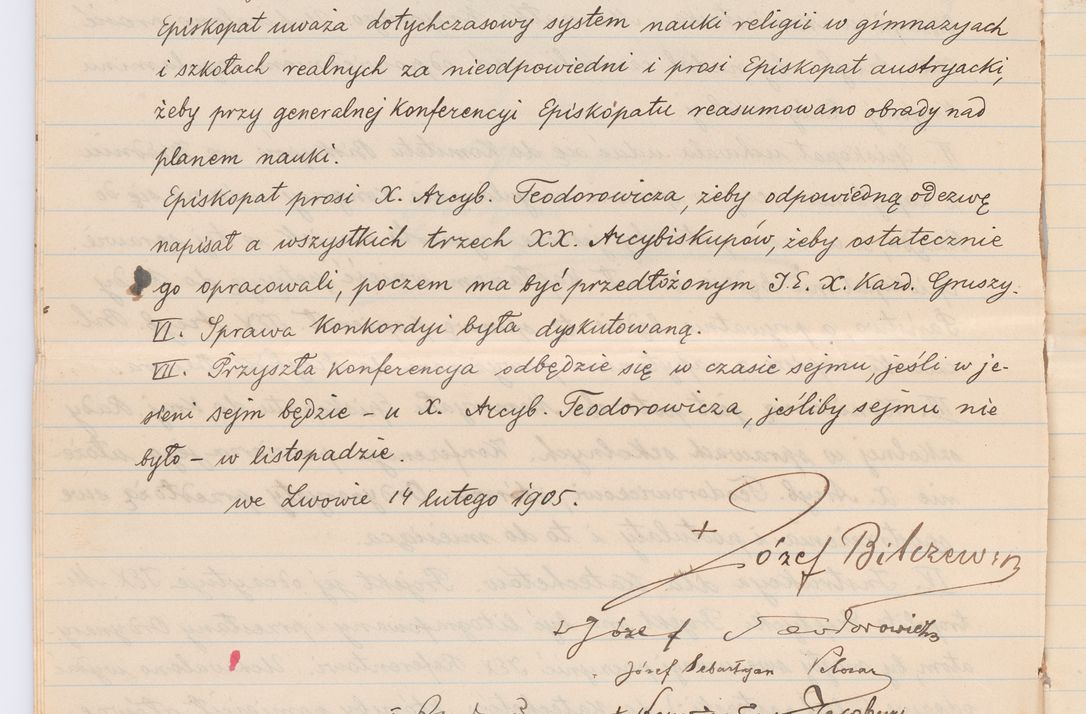 Episkopat uważa dotychczasowy system nauki religii w gimnazyach
i szkołach realnych za nieodpowiedni i prosi Episkopat austryacki,
żeby przy generalnej Konferencyi Episkópatu reasumowano obrady nad
planem nauki.
Episkopat prosi X. Arcyb. Teodorowicza, żeby odpowiedną odezwę
napisał a wszystkich trzech XX. Arcybiskupów, żeby ostatecznie
go opracowali, poczem ma być przedłożonym J.E. X. Kard. Gruszy.
VI. Sprawa Konkordyi była dyskutowaną.
VII. Przyszła Konferencya odbędzie się w czasie sejmu, jeśli w je-
sieni sejm będzie – u X. Arcyb. Teodorowicza, jeśliby sejmu nie
było – w listopadzie.
we Lwowie 14 lutego 1905.
+ Józef Bilczewski
+ Józef Teodorowicz
Józef Sebastyan Pelczar